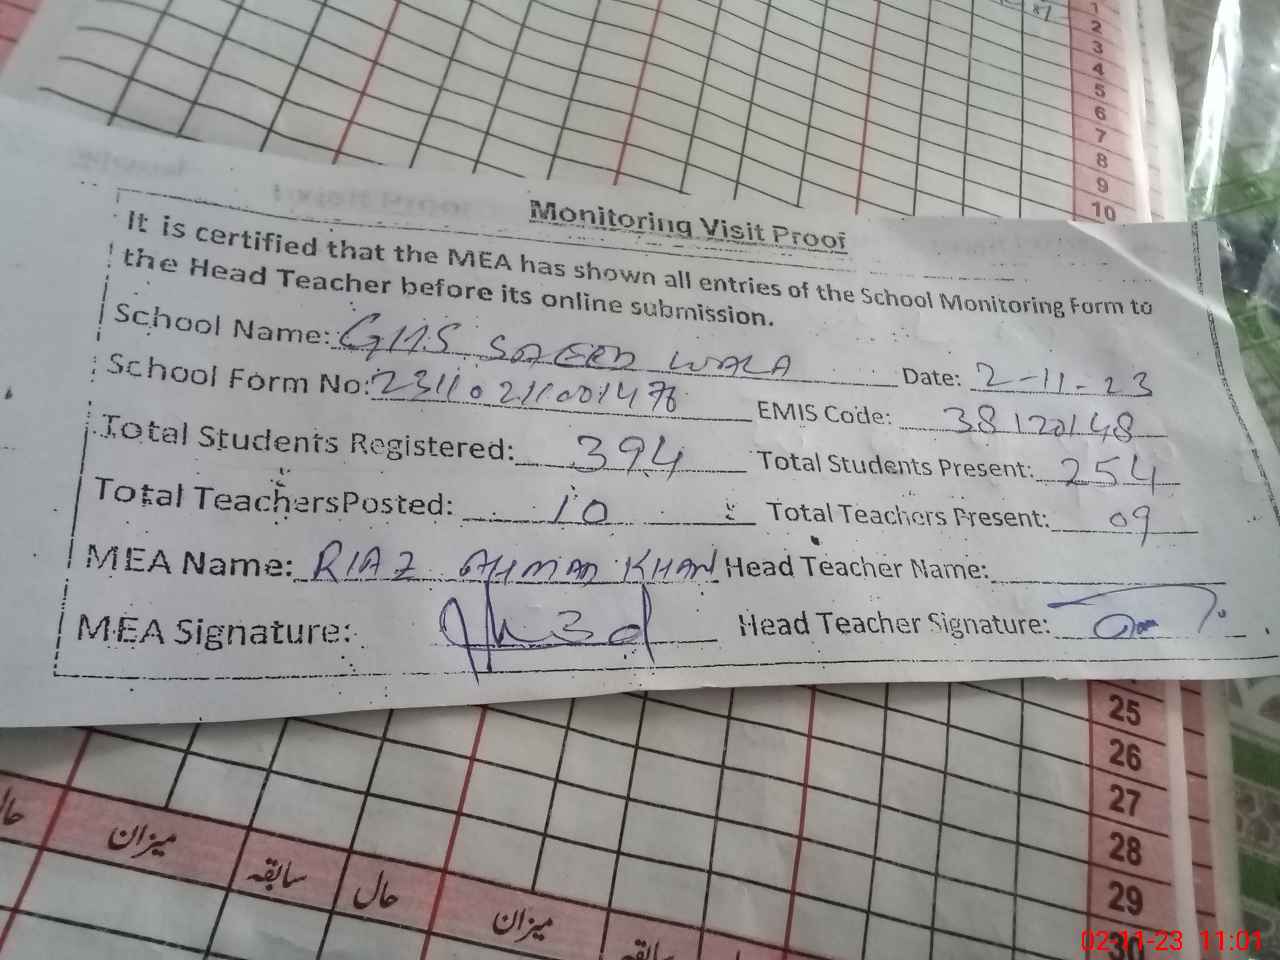 1
2
3
4
5
6
7
8
9
10
Monitoring Visit Proof
It is certified that the MEA has shown all entries of the School Monitoring Form to
the Head Teacher before its online submission.
School Name: GHS SAEED WALA Date: 2-11-23
School Form No: 23110211001476 EMIS Code: 38120148
Total Students Registered: 394 Total Students Present: 254
Total Teachers Posted: 10 Total Teachers Present: 09
MEA Name: RIAZ AHMAD KHAN Head Teacher Name:
MEA Signature: Head Teacher Signature:
25
26
27
28
29
30
میزان
سابقہ
حال
میزان
سابقہ
02-11-23 11:01